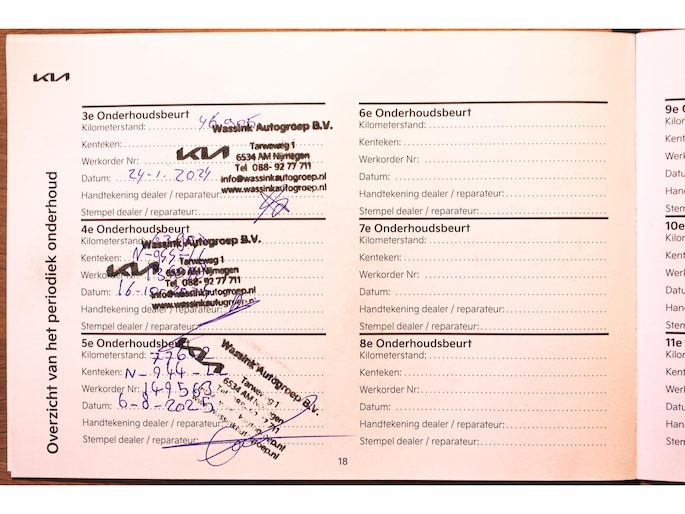 KIA
Overzicht van het periodiek onderhoud
3e Onderhoudsbeurt
Kilometerstand:
Wassink Autogroep B.V.
Kenteken:
KIA
Tarweweg 1
6534 AM Nijmegen
Werkorder Nr:
Tel 088- 92 77 711
Datum: 24-1-2024
info@wassinkautogroep.nl
www.wassinkautogroep.nl
Handtekening dealer / reparateur:
Stempel dealer / reparateur:
4e Onderhoudsbeurt
Kilometerstand:
Wassink Autogroep B.V.
Kenteken:
KIA
Tarweweg 1
6534 AM Nijmegen
Werkorder Nr:
Tel 088- 92 77 711
Datum: 16-10-
info@wassinkautogroep.nl
www.wassinkautogroep.nl
Handtekening dealer / reparateur:
Stempel dealer / reparateur:
5e Onderhoudsbeurt
Kilometerstand:
Kenteken: N-944-
Werkorder Nr: 149563
Datum: 6-8-2025
KIA
Wassink Autogroep B.V.
Tarweweg 1
6534 AM Nijmegen
Handtekening dealer / reparateur:
Stempel dealer / reparateur:
6e Onderhoudsbeurt
Kilometerstand:
Kenteken:
Werkorder Nr:
Datum:
Handtekening dealer / reparateur:
Stempel dealer / reparateur:
7e Onderhoudsbeurt
Kilometerstand:
Kenteken:
Werkorder Nr:
Datum:
Handtekening dealer / reparateur:
Stempel dealer / reparateur:
8e Onderhoudsbeurt
Kilometerstand:
Kenteken:
Werkorder Nr:
Datum:
Handtekening dealer / reparateur:
Stempel dealer / reparateur:
18
9e O
Kilor
Kent
Werk
Datu
Hand
Stem
10e
Kilo
Ken
Wer
Dat
Han
Ste
11e
Kilo
Ken
We
Dat
Har
Ste